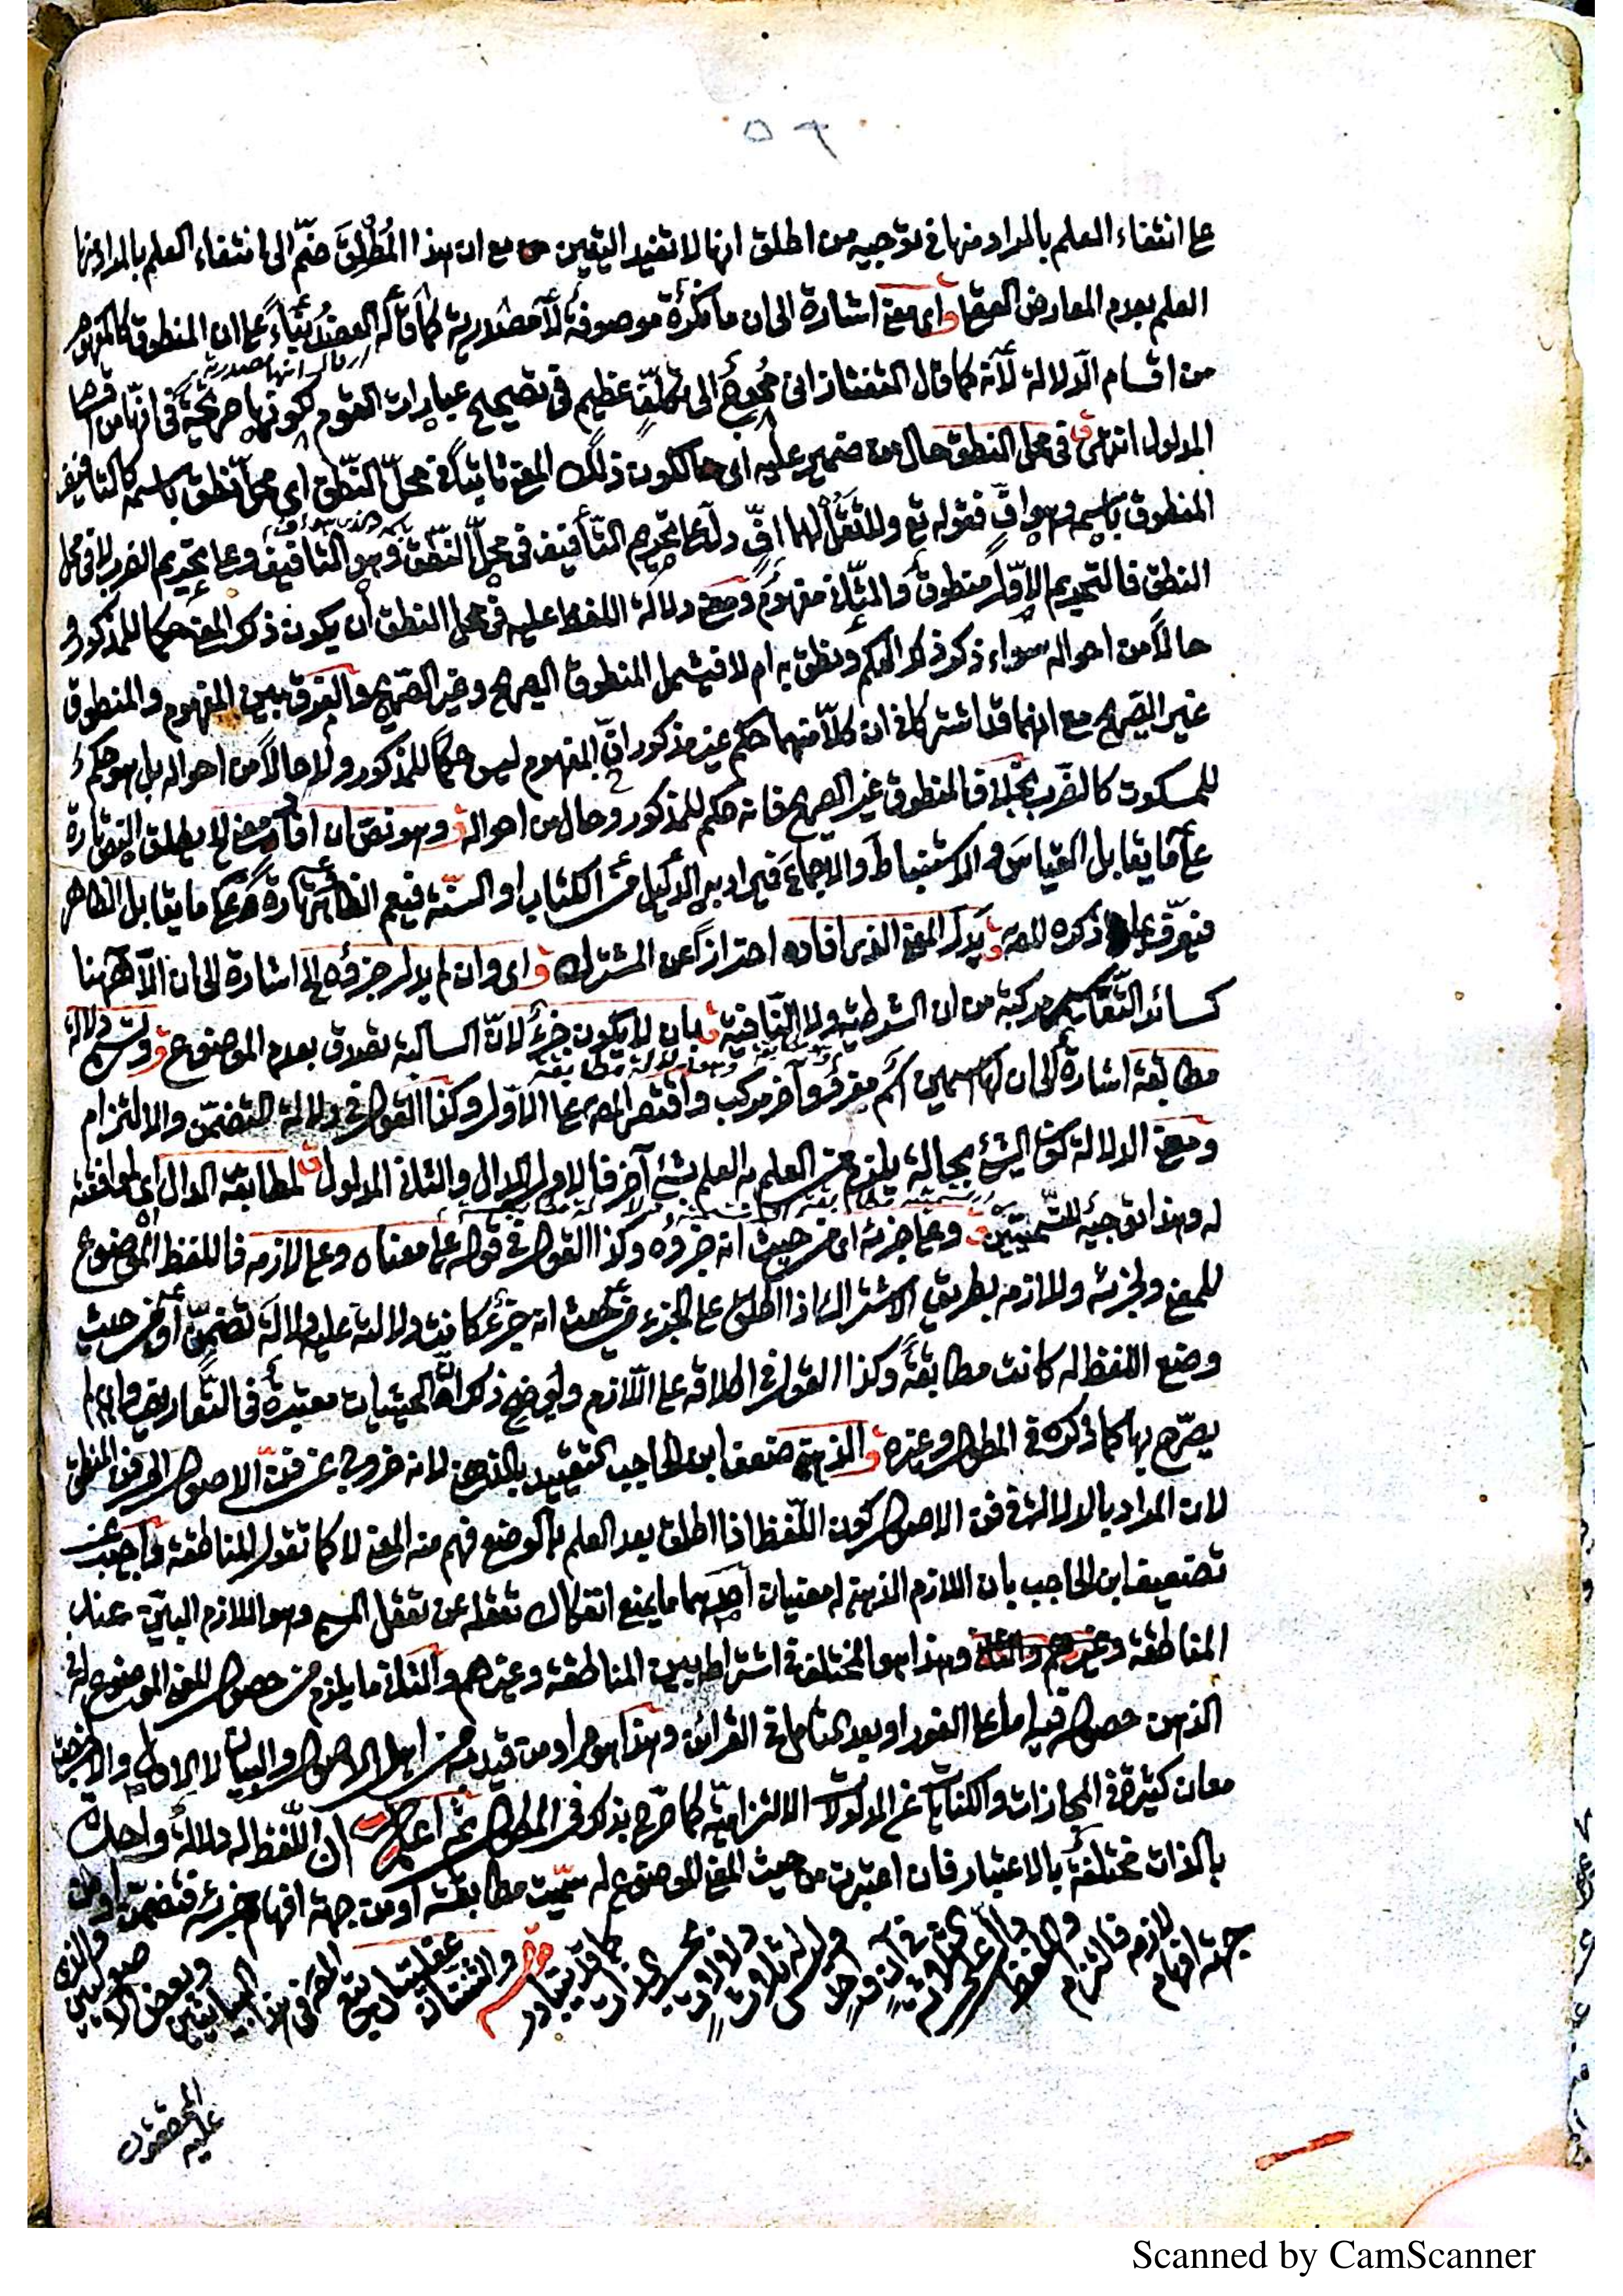 ٥٦
على انتفاء العلم بالمراد منها في توجيه من اطلق انها لا تفيد اليقين مع ان هذا المُطْلِقَ ضمّ الى انتفاء العلم بالمراد منها
العلم بعدم المعارض العقلي اي معنى اشارة الى ان ما نكرة موصوفة لا مصدرية كما قاله العضد بناءً على ان المنطوق كالمفهوم
من اقسام الدلالة لانه كما قال التفتازاني مُحوِج الى تكلّف عظيم في تصحيح عبارات القوم لكونها صريحة في انها من اقسام
المدلول انتهى في محل النطق حال من ضمير عليه اي لكون ذلك المعنى ثابتًا في محلّ النّطق اي محل نطق باسمه كالتأفيف
المنطوق باسمه وهو افّ فقوله تع ولا تقل لهما افٍّ دل على تحريم التأفيف في محل النطق وهو التأفيف وعلى تحريم الضرب لا في محل
النطق فالتحريم الاوّل منطوق والثاني مفهوم ومعنى دلالة اللفظ عليه في محل النطق ان يكون ذلك المعنى حكما للمذكور و
حالًا من احواله سواء ذكر ذلك الحكم ونطق به ام لا فيشمل المنطوق الصريح وغير الصريح والفرق بين المفهوم والمنطوق
غير الصريح مع انهما قد اشتركا في ان كلاّ منهما حكم غير مذكور انّ المفهوم ليس حكمًا للمذكور ولا حالًا من احواله بل هو حكم
للمسكوت كالضرب بخلاف المنطوق غير الصريح فانه حكم للمذكور وحال من احواله وهو نص ان افاد معنى الخ يطلق النص تارة
على ما يقابل القياس والاستنباط والاجماع فيراد به الدليل من الكتاب او السنّة فيعم الظاهر وتارة على ما يقابل الظاهر
فيعرّف بما ذكره المص يدل المعنى الذي افاده احترازًا عن المشترك اي وان لم يدل جزؤه الخ اشارة الى ان الّا ههنا
كسائر التقاسيم مركبة من ان الشرطية ولا النافية بان لا يكون جزءٌ لانّ السالبة تصدق بعدم الموضوع وتسمى دلالة
مطابقة اشارة الى ان لها اسمين اسم مفرد وآخر مركب واقتصر المص على الاوّل وكذا القول في دلالة التضمّن والالتزام
ومعنى الدلالة كون الشيء بحالة يلزم من العلم به العلم بشيء آخر فالاول الدال والثاني المدلول لمطابقة الدال اي لموافقته
له وهذا توجيه للتسميتين وعلى جزئه اي من حيث انه جزؤه وكذا القول في قوله على معناه وعلى لازمه فاللفظ الموضوع
للمعنى ولجزئه وللازمه بطريق الاشتراك اذا اطلق على الجزء من حيث انه جزءٌ كانت دلالته عليه دلالة تضمّن او من حيث
وضع اللفظ له كانت مطابقةً وكذا القول في اطلاقه على اللازم ولم يذكر الحيثيات معتبرة في التعاريف وان لم
يصرّح بها كما ذكره في المطول وغيره الذهني ضعف ابن الحاجب التقييد بالذهن لانه خروج عن فنّ الاصول الى فن المنطق
لان المراد بالدلالة في فن الاصول كون اللفظ اذا اطلق بعد العلم بالوضع فهم منه المعنى لا كما تقول المناطقة واجيب عن
تضعيف ابن الحاجب بان اللازم الذهني له معنيان احدهما ما يمنع انفكاك تعقله عن تعقل المسمى وهو اللازم البيّن عند
المناطقة وهذا هو المختلف في اشتراطه بين المناطقة وغيرهم والثاني ما يلزم من حصول المعنى الموضوع له في
الذهن حصوله فيه اما على الفور او بعد التأمل في القرائن وهذا هو مراد من قيد به من اهل الاصول والبيان لا الاول والا لخرجت
معان كثيرة في المجازات والكنايات عن المدلولات الالتزامية كما صرّح بذلك في المطول ثم اعلم ان اللفظ له دلالة واحدة
بالذات مختلفة بالاعتبار فان اعتبرت من حيث المعنى الموضوع له سمّيت مطابقة او من جهة افهام جزئه فتضمن او من
جهة افهام لازمه فالتزام
المحققون
عليه
Scanned by CamScanner